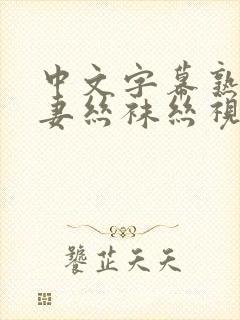 中文字幕熟
妻丝袜丝视
饕芷天天